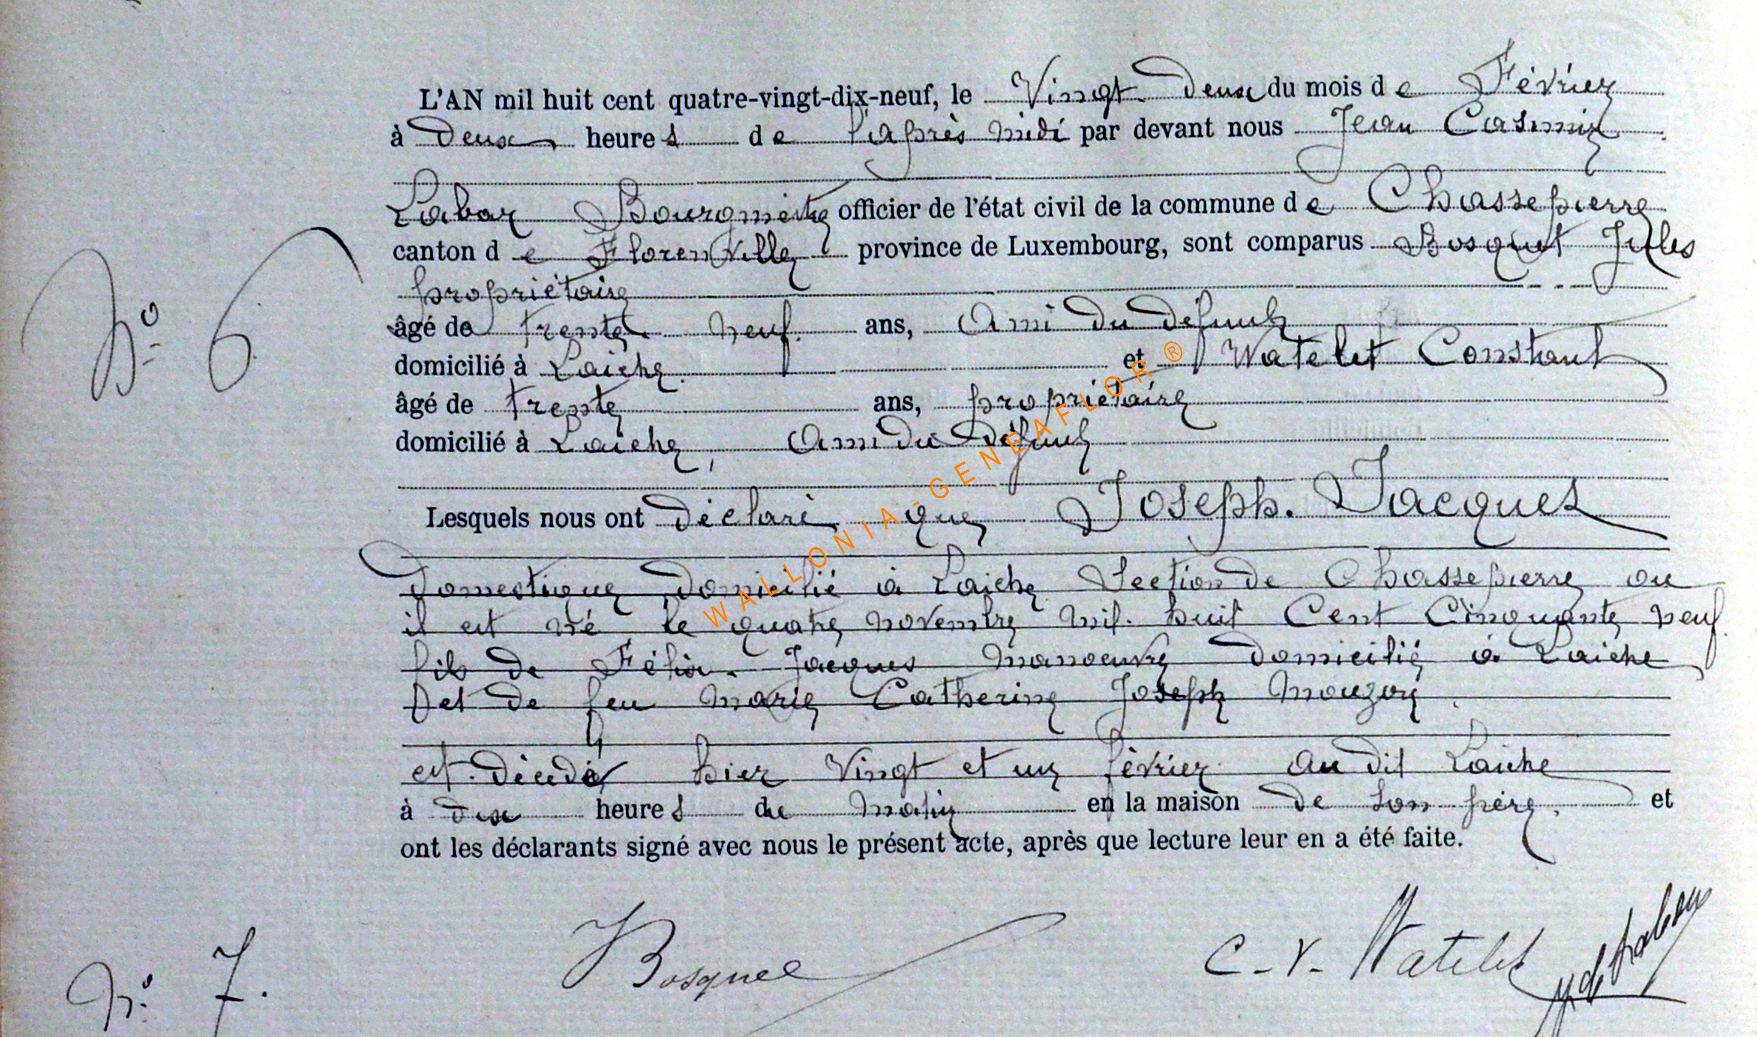 L'AN mil huit cent quatre-vingt-dix-neuf, le Vingt deux du mois de Février
à deux heures de l'après midi par devant nous Jean Casimir
Labar Bourgmestre officier de l'état civil de la commune de Chassepierre
canton de Florenville province de Luxembourg, sont comparus Bosquet Jules
propriétaire
N° 6
âgé de trente neuf ans, Ami du défunt
domicilié à Laiche et Watelet Constant
âgé de trente ans, propriétaire
domicilié à Laiche, Ami du défunt
Lesquels nous ont déclaré que Joseph. Jacques
domestique domicilié à Laiche Section de Chassepierre ou
il est né le quatre novembre mil huit Cent Cinquante neuf
fils de Félix Jacques manoeuvre domicilié à Laiche
et de feu Marie Catherine Joseph Mouzon
est décédé hier Vingt et un février au dit Laiche
à dix heures du matin en la maison de son père. et
ont les déclarants signé avec nous le présent acte, après que lecture leur en a été faite.
Bosquet C-V-Watelet
N° 7.
WALLONIA-GENEAFLOR ®